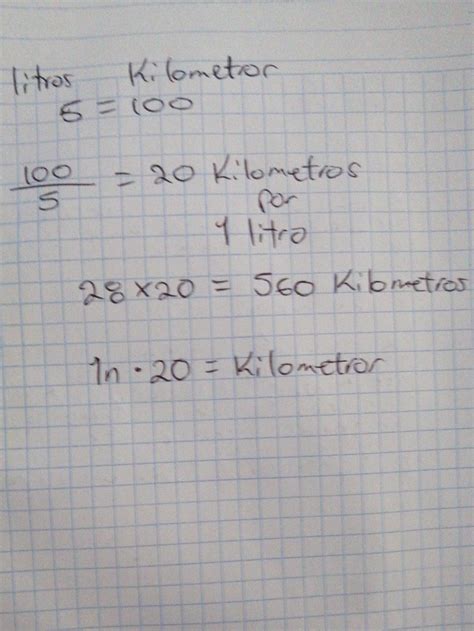 litros Kilometror
5 = 100
100
5
= 20 Kilometros
por
1 litro
28 x 20 = 560 Kilometros
1n · 20 = Kilometror